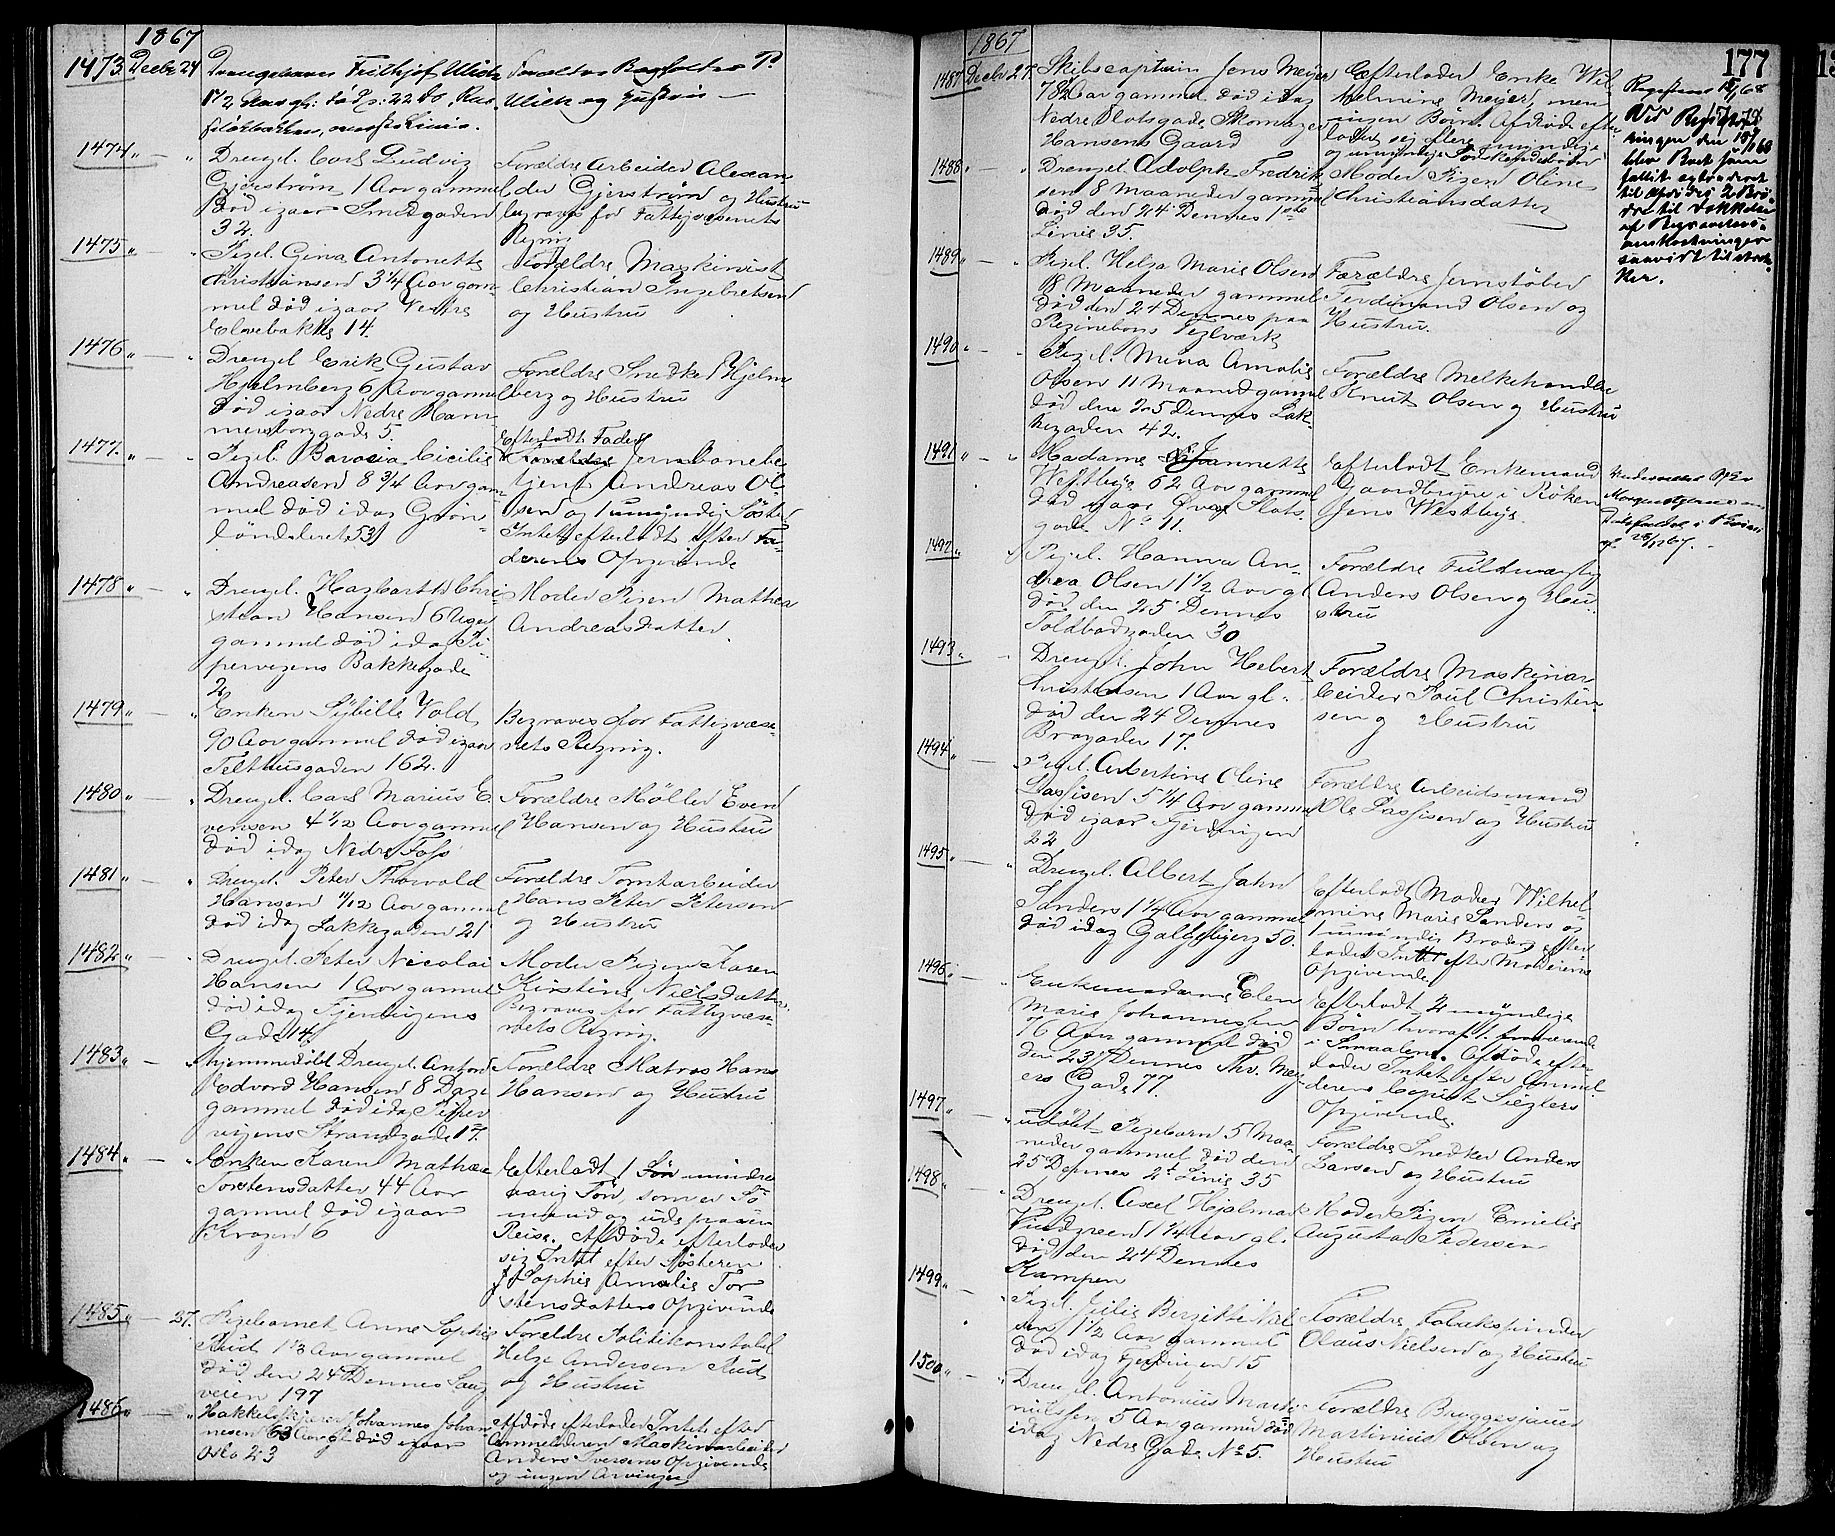 1867
1473. Decbr 24 Drengebarn Frithjof Ulich
1 1/2 Aar gl. død
1474 " — " Drengeb. Carl Ludvig
Gjerstrøm 1 Aar gammel
Død igaar Smedgaden
34.
Forældre Arbeider Alexan
der Gjerstrøm og Hustru
begraves for Fattigvæsenets
Regning
1475 " — " Pigeb. Gina Antonette
Christiansen 3 1/4 Aar gam-
mel død igaar Vestre
Elvebakke 14.
Forældre Maskinist
Christian Ingebretsen
og Hustru
1476 " — " Drengeb. Erik Gustav
Hjelmberg 6 Aar gammel
død igaar Nedre Ham-
mersborggade 5.
Forældre Snedker Hjelm
berg og Hustru
1477. " — " Pigeb. Cicilie
Andreasen 8 3/4 Aar gam-
mel død idag Grøn-
landsleret 53
Efterladt Fader
Forældre Jernbanebe
tjent Andreas Ol-
sen og 1 umyndig Søster
Intet efterladt efter Fa-
derens Opgivende
1478 " — " Drengeb. Hagbarth Chri-
stian Hansen 6 Uger
gammel død idag Pi-
pervigens Bakkegade
2
Moder Pigen Mathea
Andreasdatter.
1479 " — " Enken Sybille Vold
90 Aar gammel død igaar
Telthusgaden 162.
Begraves for Fattigvæse-
nets Regning.
1480 " — " Drengeb. Carl Marius E
vensen 4 1/12 Aar gammel
død idag Nedre Foss
Forældre Møller Even
Hansen og Hustru
1481 " — " Drengeb. Peter Thorvald
Hansen 1/12 Aar gammel
død idag Lakkegaden 21
Forældre Tomtarbeider
Hans Peter Petersen
og Hustru
1482 " — " Drengeb. Peter Nicolai
Hansen 1 Aar gammel
død idag Fjerdingens
Gade 14
Moder Pigen Karen
Kirstine Nielsdatter
Begraves for Fattigvæse-
nets Regning.
1483 " — " hjemmedøbt Drengeb. Anton
Edvard Hansen 8 Dage
gammel død idag Piper
vigens Strandgade 17.
Forældre Matros Hans
Hansen og Hustru
1484 " — " Enken Karen Mathea
Torstensdatter 44 Aar
gammel død igaar
Krogen 6
Efterladt 1 Søn mindre
aarig Søn, som er Sø
mand og ude paa en
Reise. Afdøde efterlader
sig Intet efter Søsteren
Sophie Amalie Tor
stensdatters Opgivende
1485 " — 27. Pigebarnet Anne Sophie
Ruud 1 1/3 Aar gammel
død den 24 Dennes Laug
veien 197
Forældre Politikonstabel
Helge Andersen Ruud
og Hustru
1486 " — " Hakkelskjærer Johannes Johan
nesen 63 Aar gl død igaar
Oslo 23
Afdøde efterlader Intet efter
Anmelderen Maskinarbeider
Anders Iversens Opgivende
og ingen Arvinger
1867
177
1487 Decbr 27. Skibscaptain Jens Meyer
78 2/12 Aar gammel død idag
Nedre Slotsgade Skomager
Hansens Gaard
Efterlader Enke Wil-
helmine Meyer, men
ingen Børn. Afdøde efter
lader sig flere myndige
og umyndige Søskendebørn
Registreret
Ved Registre
ringen den
blev Boet som
fallit extraderet
til
dre til Dækkelse
af Begravelses-
omkostninger
saavidt tilstræk
ker.
1488 " — " Drengeb. Adolph Fredrik
sen 8 Maaneder gammel
død den 24 Dennes 1ste
Linie 35.
Moder Pigen Oline
Christiansdatter
1489 " — " Pigeb. Helga Marie Olsen
18 Maaneder gammel
død den 24 Dennes paa
Teglværk
Forældre Jernstøber
Ferdinand Olsen og
Hustru.
1490 " — " Pigeb. Mina Amalie
Olsen 11 Maaned gammel
død den 25 Dennes Lak-
kegaden 42.
Forældre Melkehandler
Knut Olsen og Hustru
1491 " — " Madame Jannette
Westbye 62 Aar gammel
død igaar Øvre Slots-
gade No 11.
Efterladt Enkemand
Gaardbruger i Røken
Jens Westbye.
28/12 67.
1492 " Pigeb. Hanna An-
drea Olsen 1 1/2 Aar gl
død den 25 Dennes
Toldbodgaden 30
Forældre Fuldmægtig
Anders Olsen og Hu-
stru
1493 " — Drengeb. John Hebert
Christensen 1 Aar gl.
død den 24 Dennes
Brogaden 17.
Forældre Maskinar
beider Poul Christen-
sen og Hustru
1494 " — " Pigeb. Albertine Oline
Lassisen 5 1/4 Aar gammel
død igaar Fjerdingen
22
Forældre Arbeidsmand
Ole Lassisen og Hustru
1495 " — " Drengeb. Albert John
Sanders 1 1/4 Aar gammel
død idag Galgebjerg 50.
Efterladt Moder Wilhel-
mine Marie Sanders og
1 umyndig Broder efter
lader Intet efter Moderens
Opgivende
1496 " — " Enkemadame Elen
Marie Johannessen
76 Aar gammel død
den 23 Dennes Thv. Mey-
ers Gade 77.
Efterladt 4 myndige
Børn hvoraf 1 fraværende
i Smaalene. Afdøde efter-
lader Intet efter Anmel-
derens Copist Sieglers
Opgivende.
1497 " — " udøbt Pigebarn 5 Maa-
neder gammel død den
25 Dennes 2d Linie 35
Forældre Snedker Anders
Larsen og Hustru
1498 " — " Drengeb. Axel Hjalmar
Vindgreen 1 1/4 Aar gl.
død den 24 Dennes
Kampen
Moder Pigen Emilie
Augusta Pedersen
1499 " — " Pigeb. Julie Bergitte Niel
sen 1 1/2 Aar gammel
død idag Fjerdingen 15
Forældre Fabrikspinder
Olaus Nielsen og Hustru
1500 " — " Drengeb. Antonius Marti-
niussen 5 Aar gammel død
idag Nedre Gade No 5.
Forældre Bryggesjauer
Martinius Olsen og
Hustru